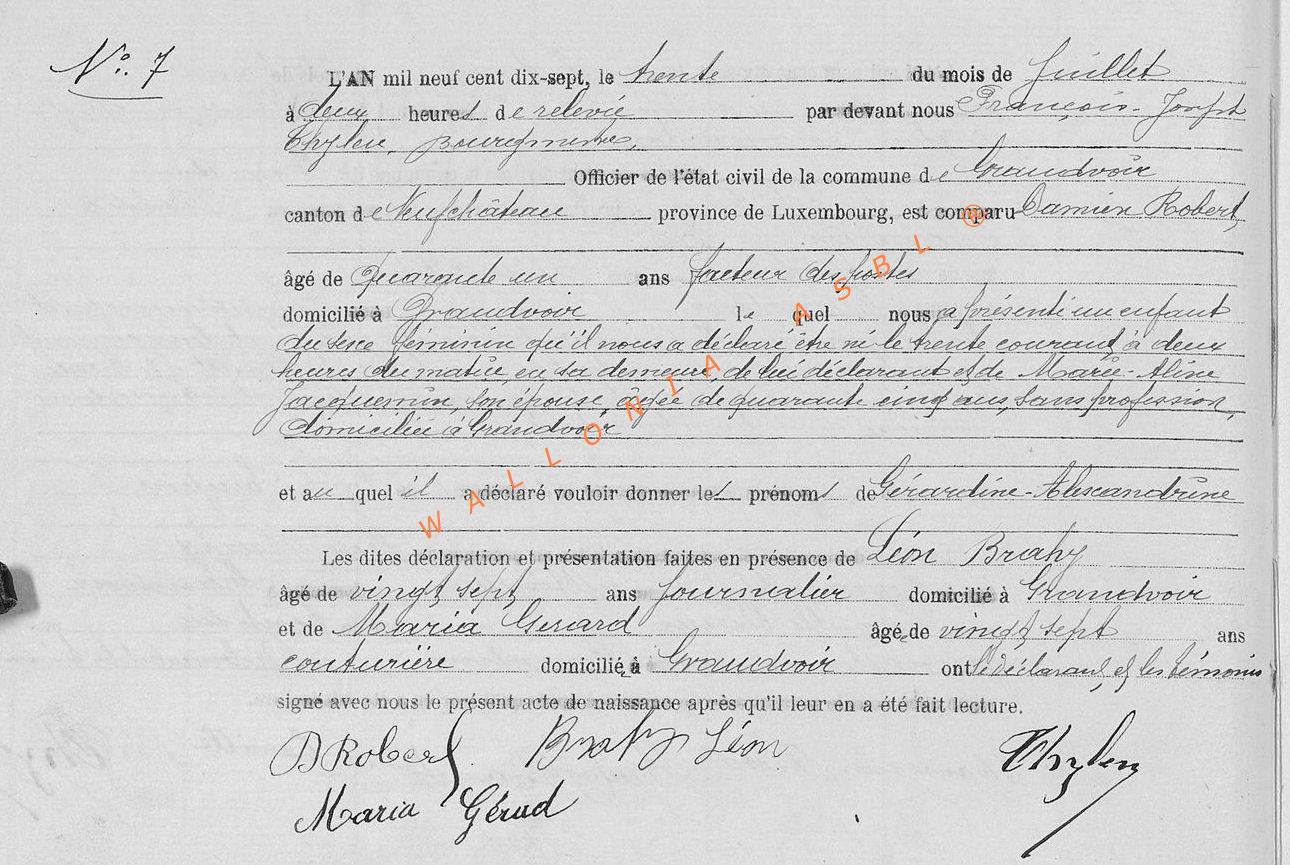 N°. 7
L'AN mil neuf cent dix-sept, le trente du mois de Juillet
à deux heures de relevée par devant nous François-Joseph
Thylen, Bourgmestre,
Officier de l'état civil de la commune de Grandvoir
canton de Neufchâteau province de Luxembourg, est comparu Damien Robert,
âgé de Quarante un ans facteur des postes
domicilié à Grandvoir le quel nous a présenté un enfant
du sexe féminin qu'il nous a déclaré être né le trente courant, à deux
heures du matin, en sa demeure, de lui déclarant et de Marie-Aline
Jacquemin, son épouse, âgée de quarante cinq ans, sans profession,
domiciliée à Grandvoir
et au quel il a déclaré vouloir donner les prénoms de Gérardine-Alexandrine
Les dites déclaration et présentation faites en présence de Léon Brahy
âgé de vingt sept ans Journalier domicilié à Grandvoir
et de Maria Gerard âgée de vingt sept ans
couturière domiciliée à Grandvoir ont le déclarant et les témoins
signé avec nous le présent acte de naissance après qu'il leur en a été fait lecture.
D Robert Brahy Léon Thylen
Maria Gérard
WALLONIA ASBL ®